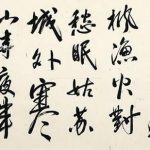 枫渔火對
愁眠姑苏
城外寒
山寺夜半